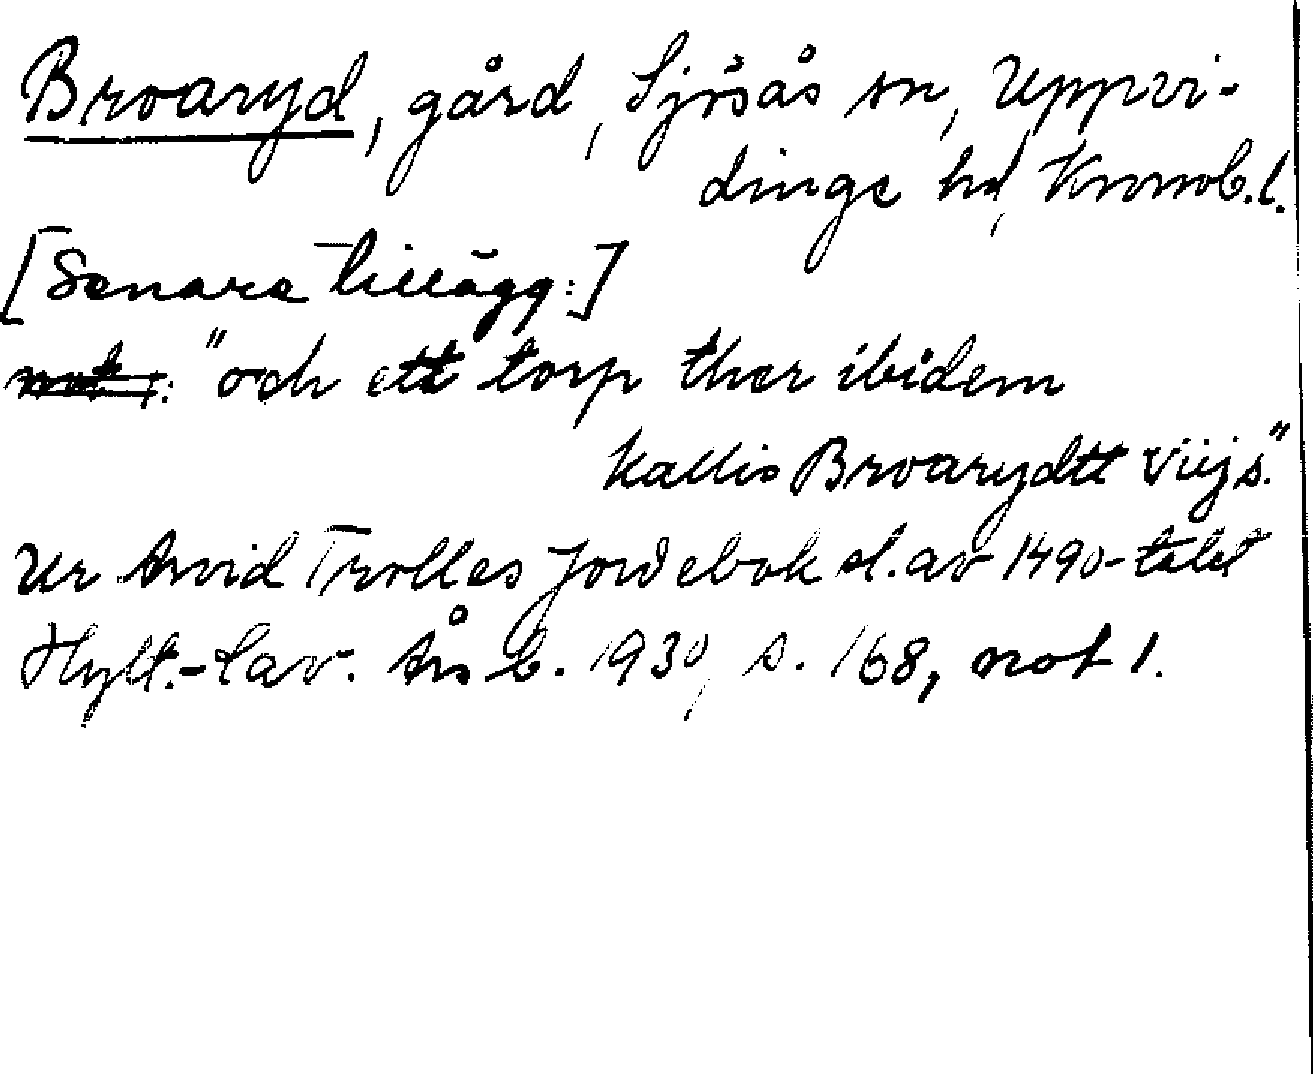 Broaryd, gård, Sjösås sn, Uppvi-
dinge hd, Kronob.l.
[Senare tillägg:]
not 1: "och ett torp ther ibidem
kallis Broarydtt viijs."
Ur Arvid Trolles Jordebok sl. av 1490-talet
Hylt.-Cav. Årsb. 1930, s. 168, not 1.